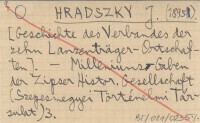 O HRADSZKY J. (1895)
[Geschichte des Verbandes der
zehn Lanzenträger-Ortschaf-
ten]. – Milleniums-Gaben
der Zipser Histor. Gesellschaft
(Szepesmegyei Történelmi Tár-
sulat) 3.